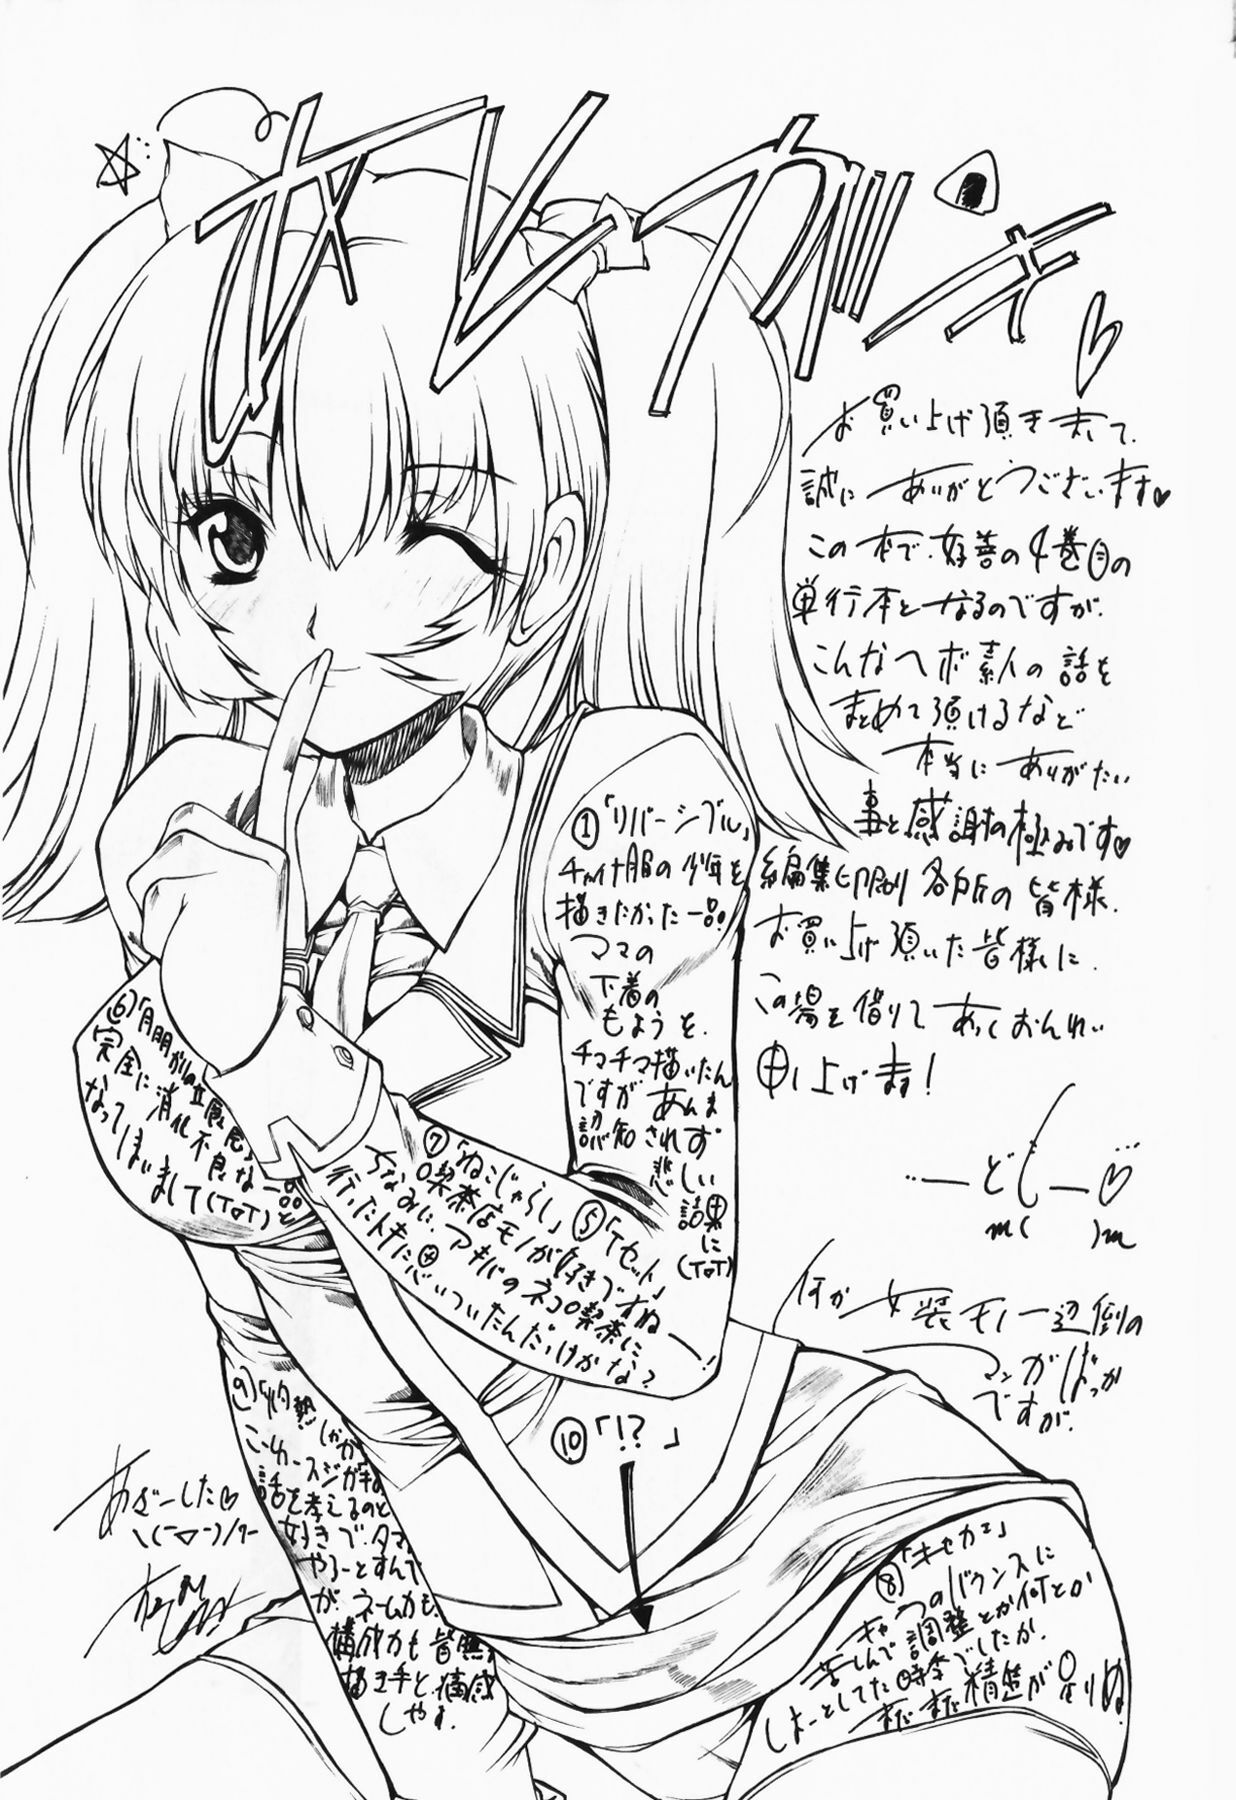 オレガキ
お買い上げ頂きまして、
誠にありがとうございます♥
この本で、好善の4巻目の
単行本となるのですが、
こんなヘボ素人の話を
まとめて頂けるなど
本当にありがたい
事と感謝の極みです♥
編集、印刷、各所の皆様、
お買い上げ頂いた皆様に、
この場を借りてあつくおんれい
申し上げます!
m( )m
何か女装モノ一辺倒の
マンガばっか
ですが、
①「リバーシブル」
チャイナ服の少年を
描きたかった一品。
ママの
下着の
もようを、
チマチマ描いたん
ですがあんま
認知されず
悲しい
結果に
(T□T)
⑤「Tセット」
⑥
完全に消化不良な一品と
なってしまいまして(T□T)
⑦「ねこじゃらし」
喫茶店モノが好きですねー!
ちなみに、アキバのネコ喫茶に
行ったトキに思いついたんだっけかな?
⑧「キセカエ」
キャラのバウンスに
苦しんで調整とか何とか
しよーとしてた時季でしたか、
まだまだ精進が足りぬ。
⑨
話を考えるのと
好きで、
やろーとすんで
が、ネーム力も、
構成力も皆無
描き手と、痛感
しやす。
⑩「!?」
あざーした♥
\(-▽-)/